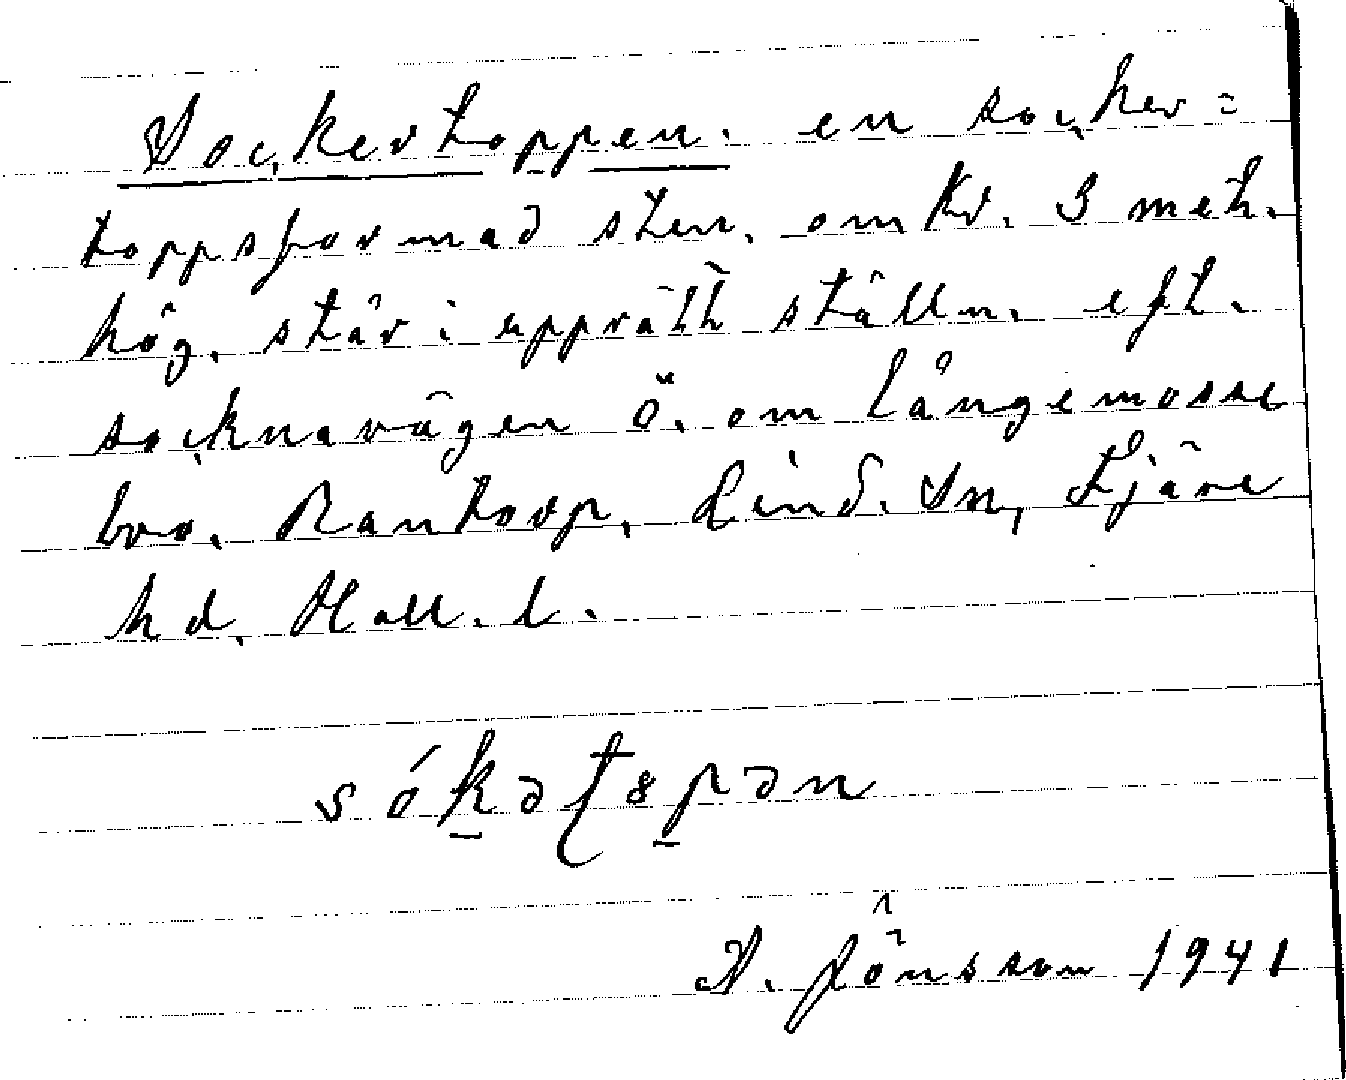 Sockertoppen. en socker=
toppsformad sten. omkr. 3 met.
hög. står i upprätt ställn. eft.
socknavägen ö. om Långemosse
bro. Rantorp. Lind. Sn, Fjäre
hd. Hall. l.
sókəʈ8pən
A. Jönsson 1941